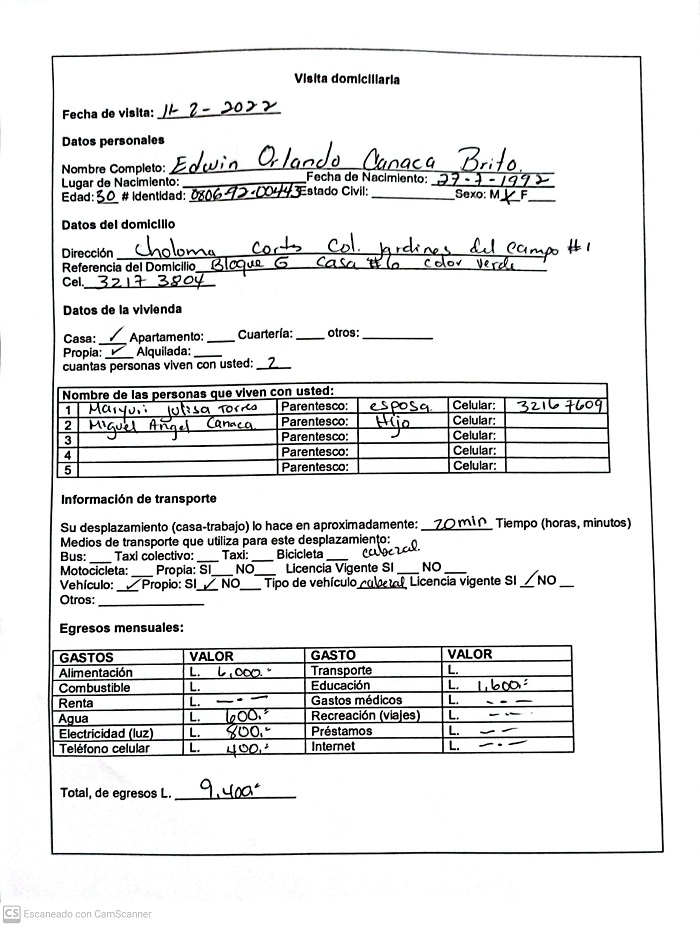 Visita domiciliaria
Fecha de visita: 11-2-2022
Datos personales
Nombre Completo: Edwin Orlando Canaca Brito.
Lugar de Nacimiento: ________ Fecha de Nacimiento: 27-7-1992
Edad: 30 # Identidad: 0806-92-00443 Estado Civil: ________ Sexo: M X F___
Datos del domicilio
Dirección Choloma Cortes Col. jardines del Campo #1
Referencia del Domicilio Bloque G Casa #6 color verde
Cel. 3217 3804
Datos de la vivienda
Casa: ✓ Apartamento: ____ Cuartería: ____ otros: ________
Propia: ✓ Alquilada: ____
cuantas personas viven con usted: 2
Nombre de las personas que viven con usted:
1 Julisa Torres Parentesco: esposa Celular: 3216 7609
2 Miguel Angel Canaca Parentesco: Hijo Celular:
3 Parentesco: Celular:
4 Parentesco: Celular:
5 Parentesco: Celular:
Información de transporte
Su desplazamiento (casa-trabajo) lo hace en aproximadamente: 20min Tiempo (horas, minutos)
Medios de transporte que utiliza para este desplazamiento:
Bus: ___ Taxi colectivo: ___ Taxi: ___ Bicicleta ___
Motocicleta: ___ Propia: SI___ NO___ Licencia Vigente SI ___ NO ___
Vehículo: ✓ Propio: SI ✓ NO___ Tipo de vehículo Licencia vigente SI ✓ NO __
Otros: ________
Egresos mensuales:
GASTOS VALOR GASTO VALOR
Alimentación L. 6,000.- Transporte L.
Combustible L. Educación L. 1,600.-
Renta L. - - - Gastos médicos L. - - -
Agua L. 600.- Recreación (viajes) L. - - -
Electricidad (luz) L. 800.- Préstamos L. - -
Teléfono celular L. 400.- Internet L. - - -
Total, de egresos L. 9,400.-
CS Escaneado con CamScanner